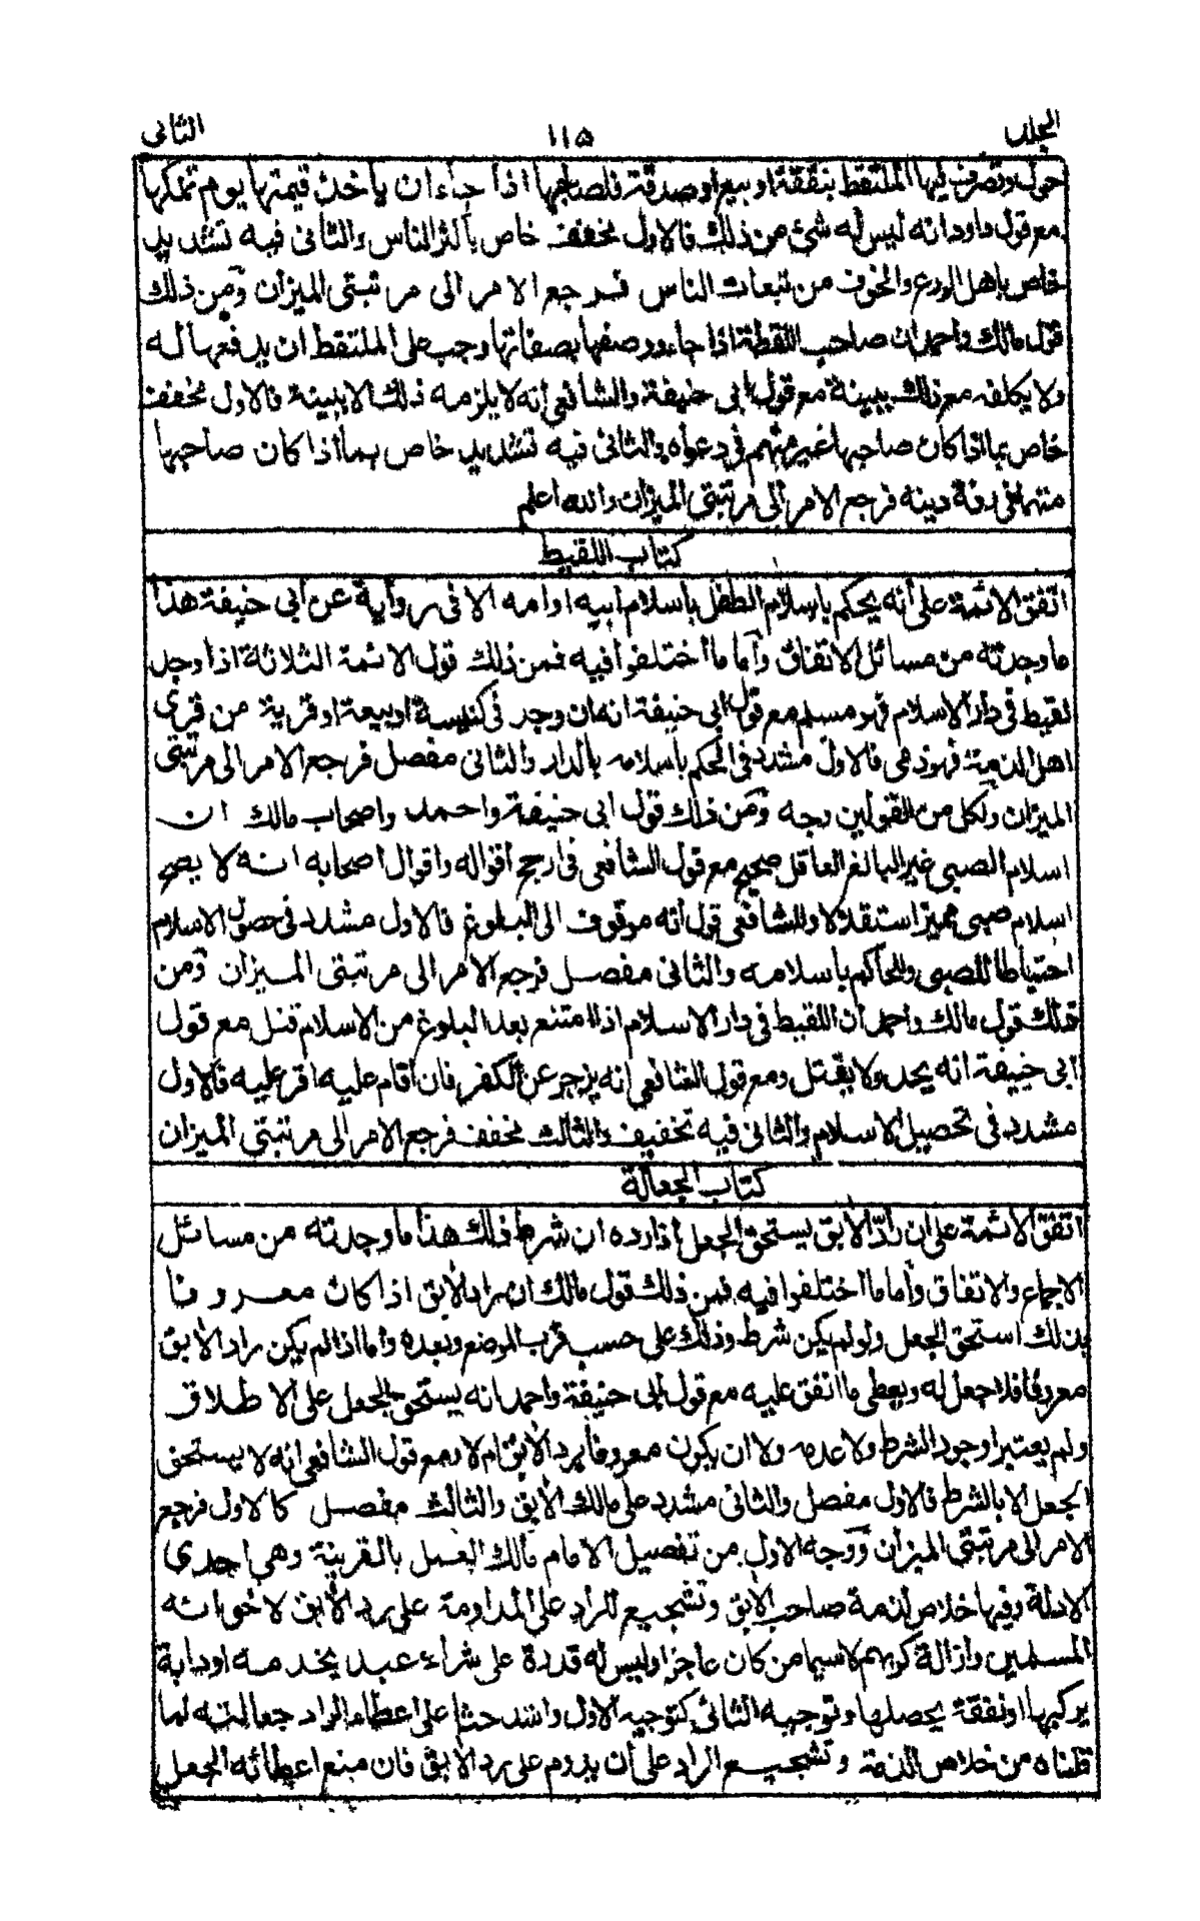 المجلد ١١٥ الثانى
حولا وتصرف فيها الملتقط بنفقة او بيع او صدقة فلصاحبها اذا جاء ان ياخذ قيمتها يوم تملكها
مع قول داود انه ليس له شئ من ذلك فالاول مخفف خاص باكثر الناس والثانى فيه تشديد
خاص باهل الورع والخوف من تبعات الناس فرجع الامر الى مرتبتى الميزان ومن ذلك
قول مالك واحمد ان صاحب اللقطة اذا جاء ووصفها بصفاتها وجب على الملتقط ان يدفعها له
ولا يكلفه مع ذلك ببينة مع قول ابى حنيفة والشافعى انه لا يلزمه ذلك الا ببينة فالاول مخفف
خاص بما اذا كان صاحبها غير متهم فى دعواه والثانى فيه تشديد خاص بما اذا كان صاحبها
متهما فى رقة دينه فرجع الامر الى مرتبتى الميزان والله اعلم
كتاب اللقيط
اتفق الائمة على أنه يحكم باسلام الطفل باسلام ابيه او امه الا فى رواية عن ابى حنيفة هذا
ما وجدته من مسائل الاتفاق وأما ما اختلفوا فيه فمن ذلك قول الائمة الثلاثة اذا وجد
لقيط فى دار الاسلام فهو مسلم مع قول ابى حنيفة انه ان وجد فى كنيسة او بيعة او قرية من قرى
اهل الذمة فهو ذمى فالاول مشدد فى الحكم باسلامه بالدار والثانى مفصل فرجع الامر الى مرتبتى
الميزان ولكل من القولين وجه ومن ذلك قول ابى حنيفة واحمد واصحاب مالك ان
اسلام الصبى غير البالغ العاقل صحيح مع قول الشافعى فى ارجح أقواله واقوال اصحابه انه لا يصح
اسلام صبى مميز استقلالا وللشافعى قول أنه موقوف الى البلوغ فالاول مشدد فى حصول الاسلام
احتياطا للصبى وللحاكم باسلامه والثانى مفصل فرجع الامر الى مرتبتى الميزان ومن
ذلك قول مالك واحمد ان اللقيط فى دار الاسلام اذا امتنع بعد البلوغ من الاسلام قتل مع قول
ابى حنيفة انه يحد ولا يقتل ومع قول الشافعى انه يزجر عن الكفر فان أقام عليه اقر عليه فالاول
مشدد فى تحصيل الاسلام والثانى فيه تخفيف والثالث مخفف فرجع الامر الى مرتبتى الميزان
كتاب الجعالة
اتفق الائمة على ان رادّ الابق يستحق الجعل اذا رده ان شرط ذلك هذا ما وجدته من مسائل
الاجماع والاتفاق وأما ما اختلفوا فيه فمن ذلك قول مالك ان راد الابق اذا كان معروفا
بذلك استحق الجعل ولو لم يكن شرط وذلك على حسب قرب الموضع وبعده وأما اذا لم يكن راد الابق
معروفا فلا جعل له ويعطى ما انفق عليه مع قول ابى حنيفة واحمد انه يستحق الجعل على الاطلاق
ولم يعتبرا وجود الشرط ولا عدمه ولا ان يكون معروفا برد الابق ام لا ومع قول الشافعى انه لا يستحق
الجعل الا بالشرط فالاول مفصل والثانى مشدد على مالك الابق والثالث مفصل كالاول فرجع
الامر الى مرتبتى الميزان ووجه الاول من تفصيل الامام مالك العمل بالقرينة وهى احدى
الادلة وفيها خلاص لذمة صاحب الابق وتشجيع للراد على المداومة على رد الأبق لاخوانه
المسلمين وازالة كربهم لاسيما من كان عاجزا وليس له قدرة على شراء عبد يخدمه او دابة
يركبها او نفقة يحصلها وتوجيه الثانى كتوجيه الاول واشد حثا على اعطاء الراد جعالته لما
قلناه من خلاص الذمة وتشجيع الراد على أن يدوم على رد الأبق فان منع اعطائه الجعل